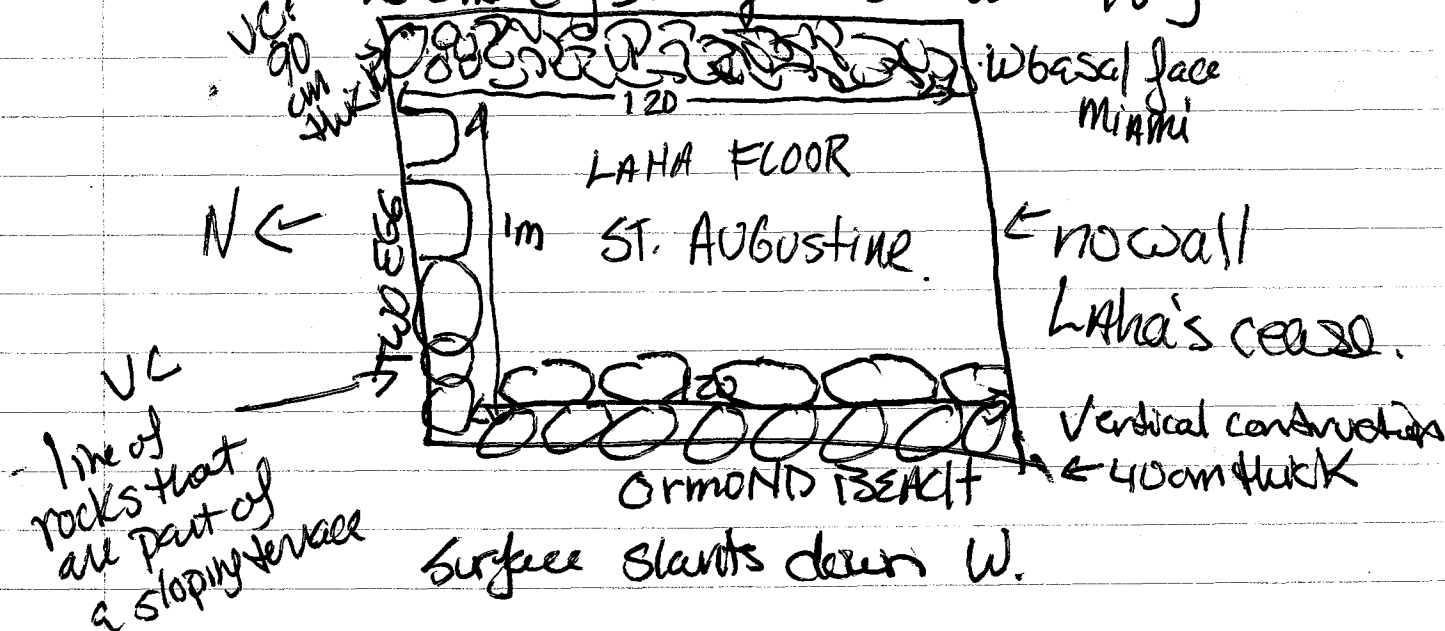 VC:
90
cm
thick
W basal face
Miami
120
LAHA FLOOR
N ←
1m
ST. AUGUSTINE.
← no wall
Laha's cease.
TWO EGG
VC
- line of
rocks that
are part of
a sloping terrace
120
Vertical construction
← 40cm thick
ORMOND BEACH
Surface slants down W.